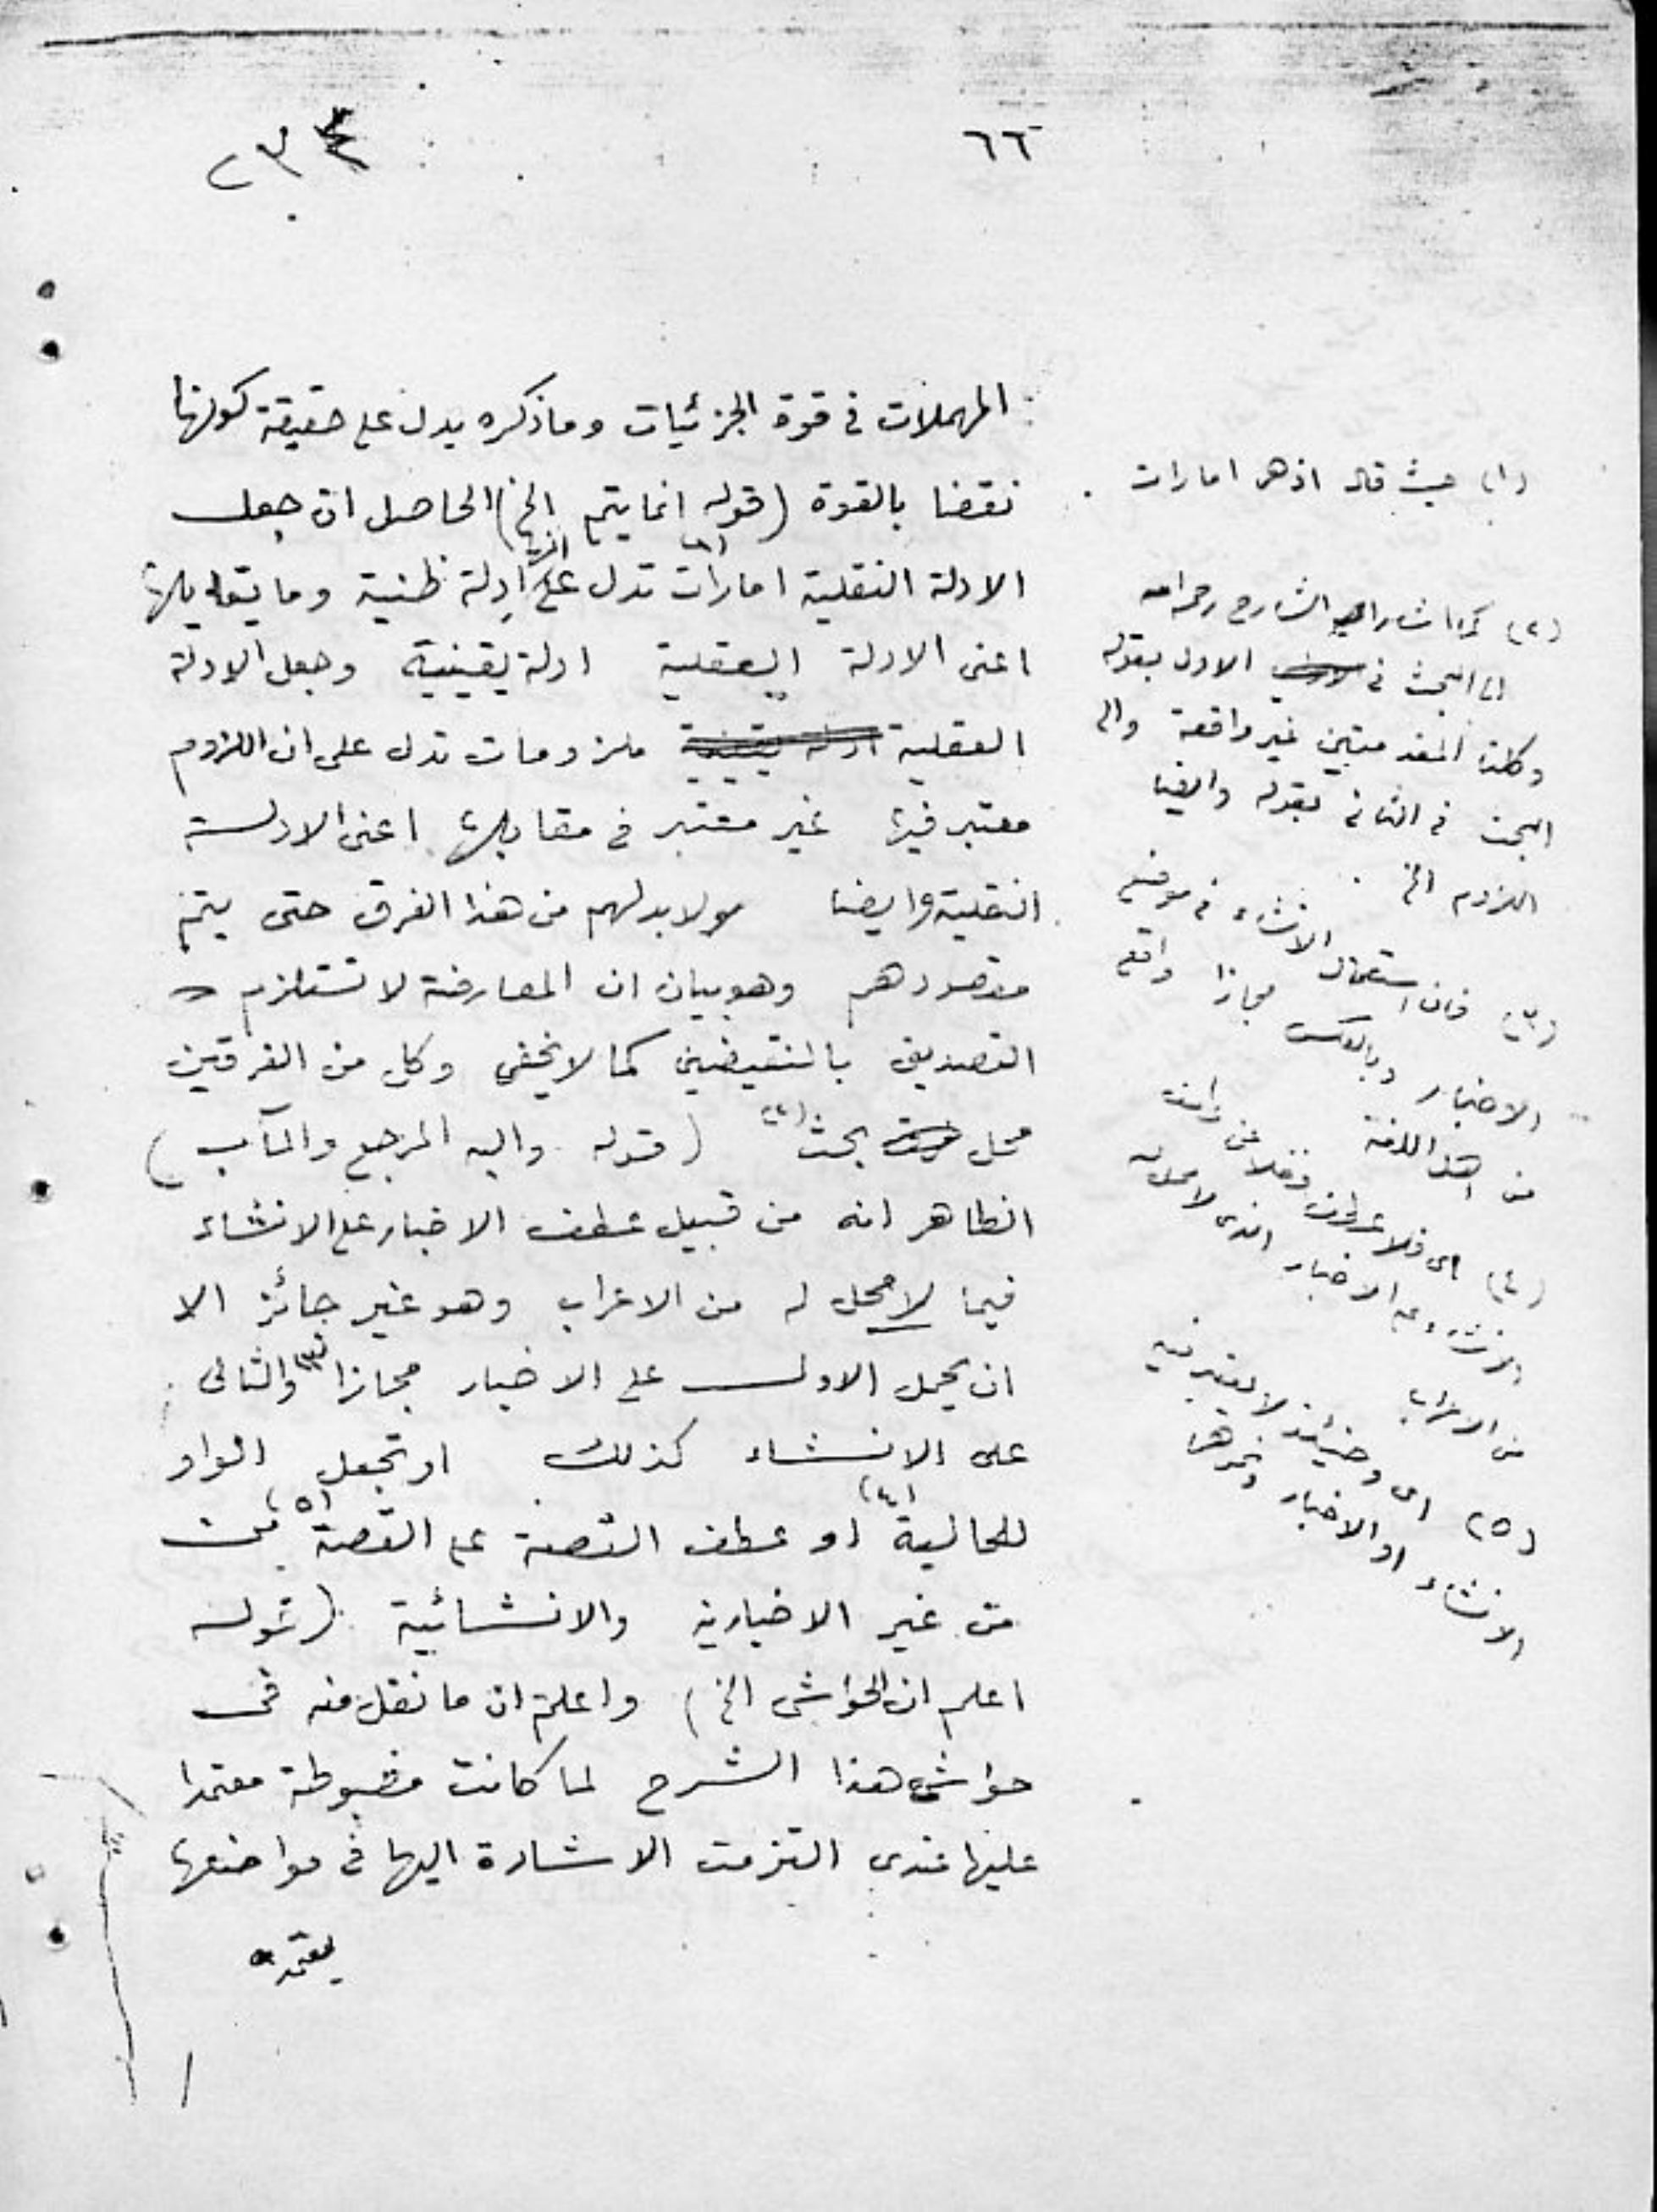 ٦٦
المهملات فى قوة الجزئيات وما ذكره يدل على حقيقة كونها
نقضا بالقوة (قوله انما يتم الخ) الحاصل ان جعل
الادلة النقلية امارات (١) تدل على انها ادلة ظنية وما يقابلها
اعنى الادلة العقلية ادلة يقينية وجعل الادلة
العقلية ملزومات تدل على ان اللزوم
معتبر فيها غير معتبر فى مقابلها اعنى الادلة
النقلية وايضا لابد لهم من هذا الفرق حتى يتم
مقصودهم وهو بيان ان المعارضة لا تستلزم
التصديق بالنقيضين كما لا يخفى وكل من الفرقين
محل بحث (٢) (قوله واليه المرجع والمآب)
الظاهر انه من قبيل عطف الاخبار على الانشاء
فيما لا محل له من الاعراب وهو غير جائز الا
ان يحمل الاول على الاخبار مجازا (٣) والثانى
على الانشاء كذلك او تجعل الواو
للحالية (٤) او عطف القصة على القصة (٥)
من غير الاخبارية والانشائية (قوله
اعلم ان الحواشى الخ) واعلم ان ما نقل منه فى
حواشى هذا الشرح لما كانت مضبوطة معتمدا
عليها عندى التزمت الاشارة اليها فى مواضعها
(١) حيث قال اذ هى امارات
(٢) كما اشار الشارح رحمه الله
الى البحث فى الاول بقوله
وكلتا المقدمتين غير واقعة والى
البحث فى الثانى بقوله وايضا
اللزوم الخ
(٣) فان استعمال الانشاء فى موضع
الاخبار وبالعكس مجازا واقع
من اهل اللغة
(٤) اى فلا عطف فضلا عن
الانشاء على الاخبار الذى لا محل له
من الاعراب
(٥) اى وحينئذ لا يعتبر فيه
الانشاء او الاخبار ونحوهما